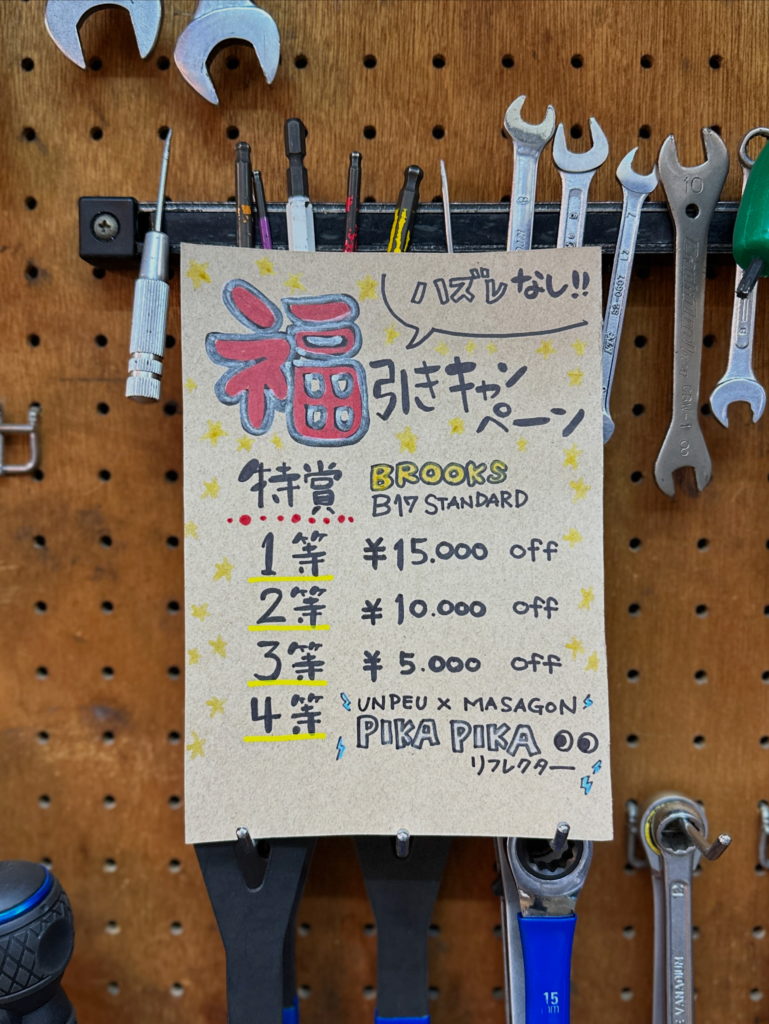 ハズレなし!!
福引きキャンペーン
特賞 BROOKS
B17 STANDARD
1等 ¥15.000 off
2等 ¥10.000 off
3等 ¥5.000 off
4等 UNPEU × MASAGON
PIKA PIKA
リフレクター
10
8
7
8
15
mm
13
VANADIUM